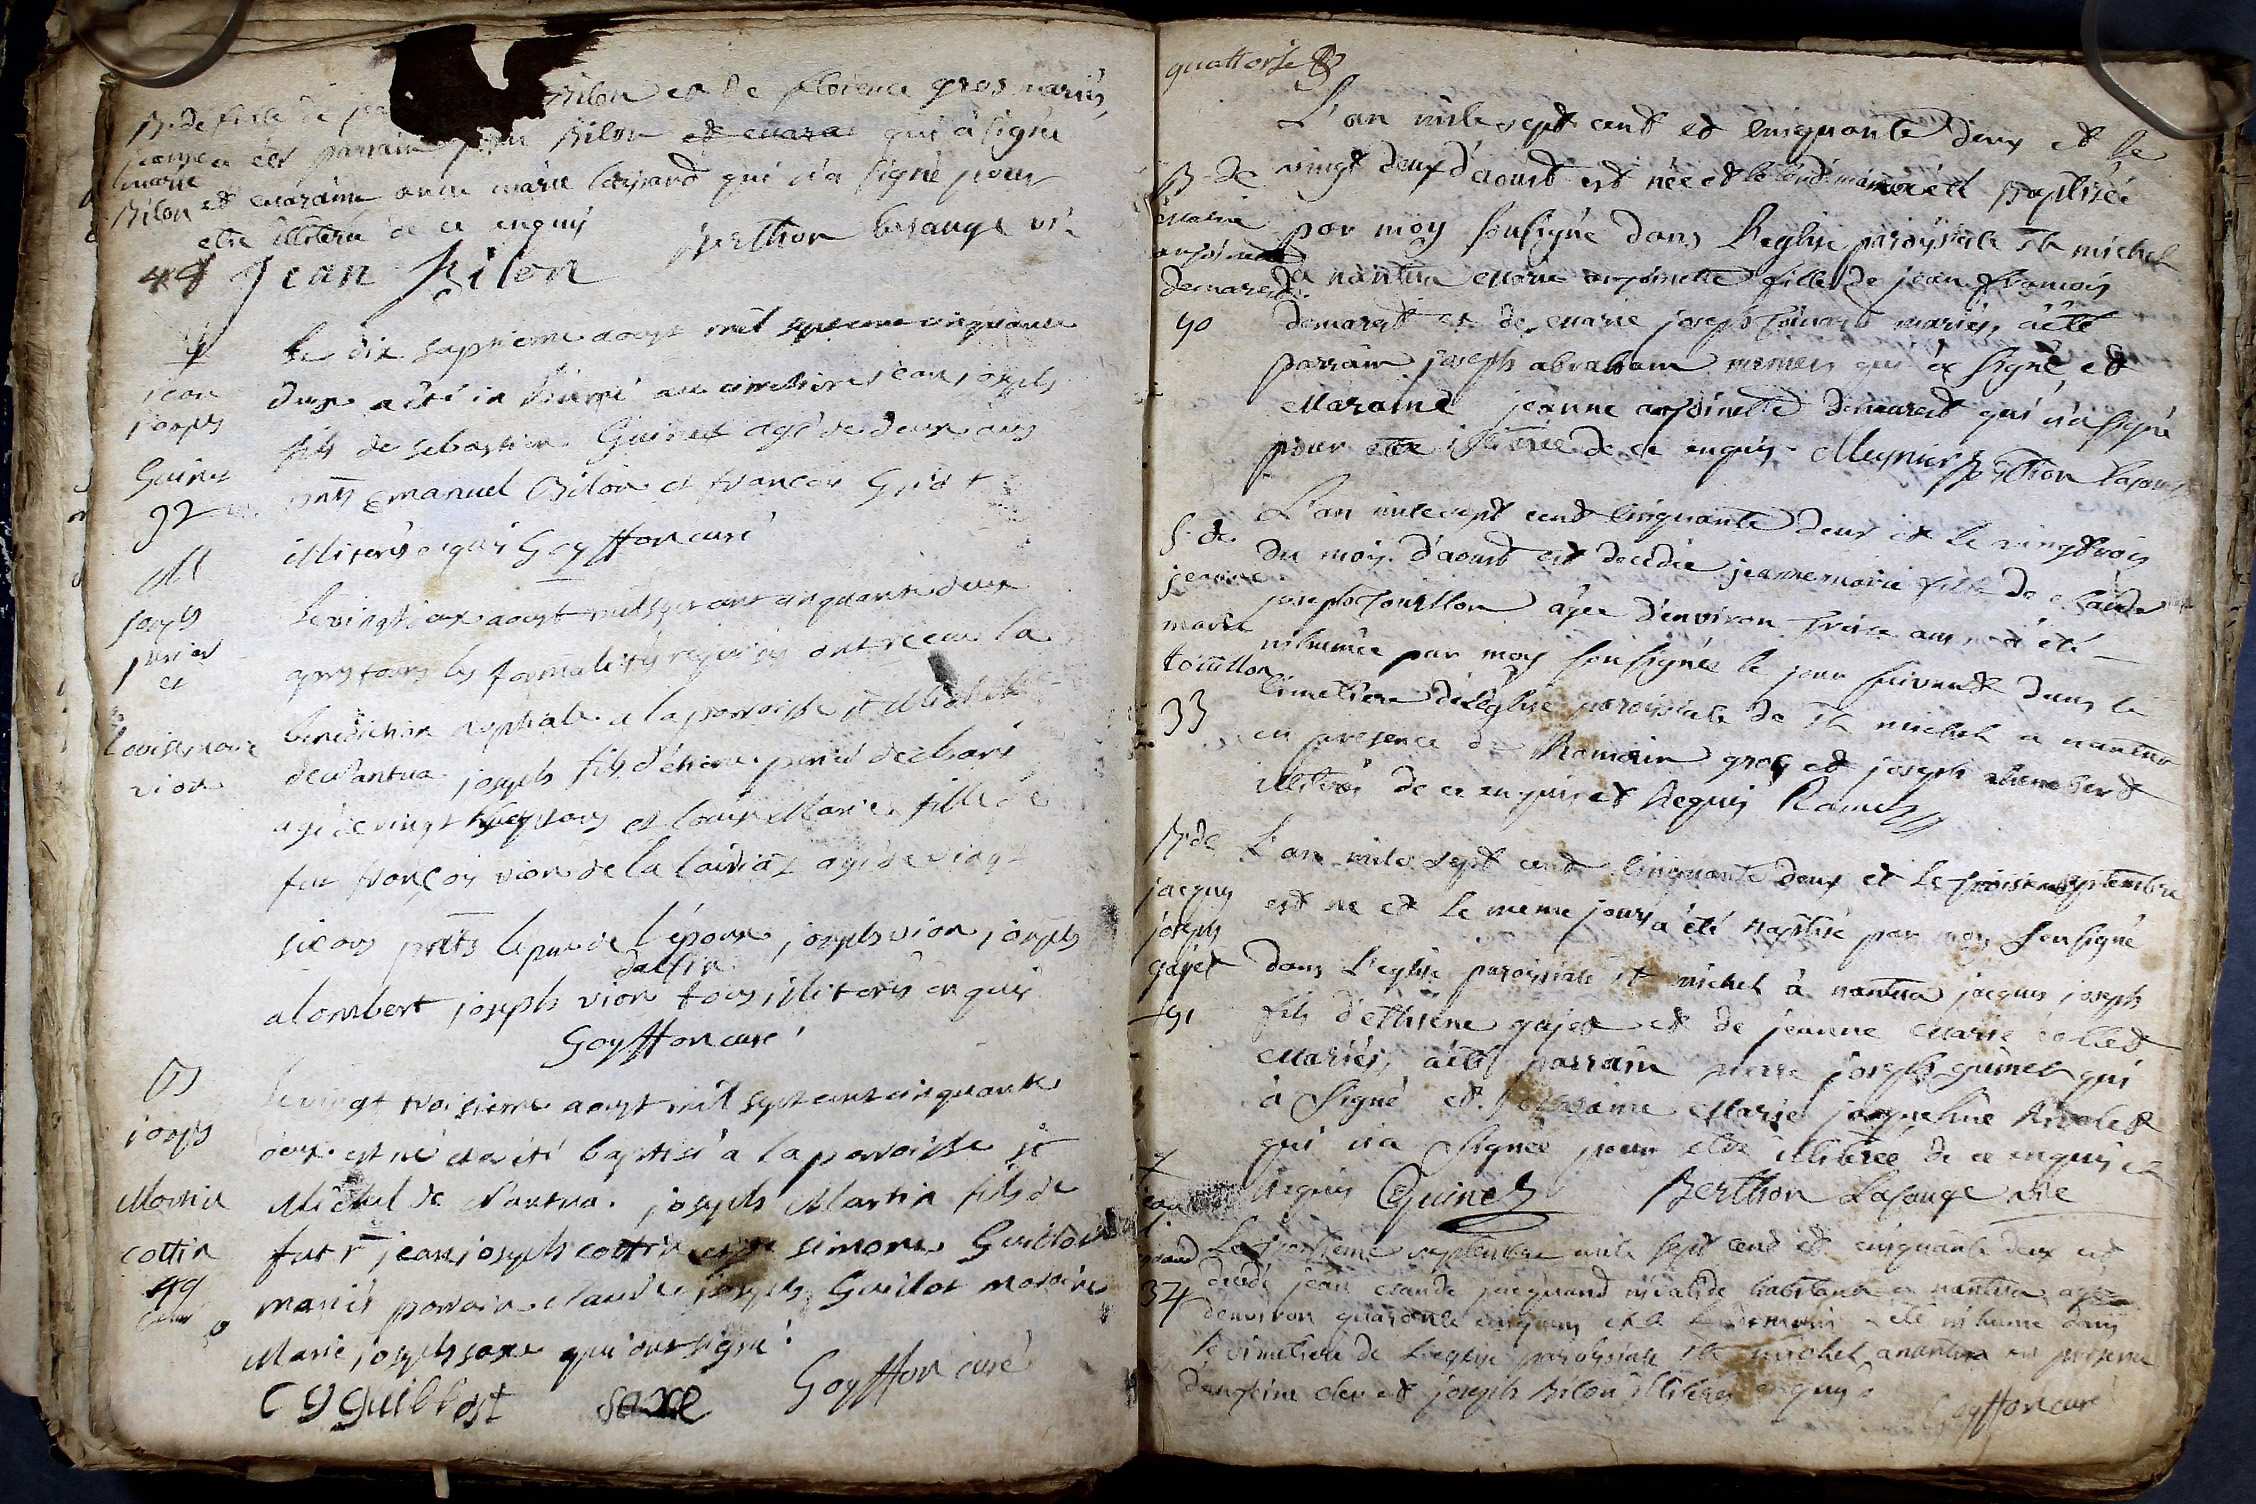 B. de fille de Bilon et de florence gros mariés,
jeanne a été parrain Bilon et mara qui a signé
marie
Bilon et maraine anne marie qui n'a signé pour
etre illiteré de ce enquis
48 Jean Bilon Berthon lasauge vic
le dix septieme aoust mil sept cent cinquante
jean deux a été inhumé au cimetiere jean joseph
joseph fils de sebastien Guinet agé de deux ans
Guinet
32 pnts Emanuel Bilon et françois
illiterés enquis Goyffon curé
M
joseph Le vingt deux aoust mil sept cent cinquante deux
et apres tous les formalités requises ont receu la
benediction nuptiale a la parroisse st Michel
Louise marie
vion de Nantua joseph fils d'etiene
agé de vingt ans et Louise Marie fille de
feu françois vion de agé de vingt
six ans pnts le pere de l'epoux joseph vion joseph
dalfin
alombert joseph vion tous illiterés enquis
Goyffon curé
B
joseph Le vingt troisieme aoust mil sept cent cinquante
deux est né et a été baptisé a la parroisse st
Martin Michel de Nantua. joseph Martin fils de
cottin feu sr jean joseph cottin et de simone Guillot
49 mariés parrain claude joseph Guillot maraine
Marie joseph saxe qui ont signé
Goyffon curé
C J Guillost saxe
quattorse
L'an mile sept cent et cinquante deux et le
B. de vingt deux d'aoust est née et le lendemain a été Baptisée
Marie par moy sousigné dans l'eglise paroissiale St michel
demarest a nantua Marie antoinette fille de jean francois
50 demarest et de marie joseph mariés, a été
parrain joseph abraham meunier qui a signé, et
Maraine jeanne antoinette demarest qui n'a signé
pour etre illiterée de ce enquis Meynier Berthon lasauge
L'an mile sept cent cinquante deux et le vingt trois
S. de du mois d'aoust est decedée jeanne marie fille de claude
jeanne joseph touillon agée d'environ treise ans, a été
marie inhumée par moy sousigné le jour suivant dans le
touillon cimetiere de l'eglise paroissiale de St michel a nantua
33 en presence de Romain gros et joseph alombert
illiterés de ce enquis et requis Ramel
B. de L'an mile sept cent cinquante deux et le troisieme septembre
jacques est né et le meme jour a été Baptisé par moy sousigné
joseph dans l'eglise paroissiale st michel à nantua jacques joseph
gajet
51 fils d'ethiene gajet et de jeanne Marie collet
Mariés, a été parrain pierre joseph guinet qui
à signé et maraine Marie jacqueline
qui n'a signée pour etre illiterée de ce enquis et
requis Guinet Berthon Lasauge vic
Le septembre mile sept cent et cinquante deux est
decedé jean claude jacquand invalide habitant a nantua agé
34 d'environ quarante cinq ans et le lendemain a été inhumé dans
le cimetiere de l'eglise paroissiale St michel a nantua en presence
d'antoine et joseph Bilon illiterés enquis
Goyffon curé